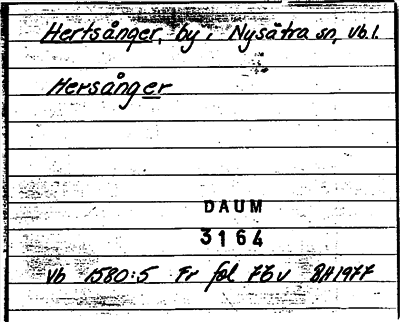 Hertsånger, by i Nysätra sn, Vb.l.
Hersånger
DAUM
3164
Vb 1580:5 Fr fol 76v BH1977